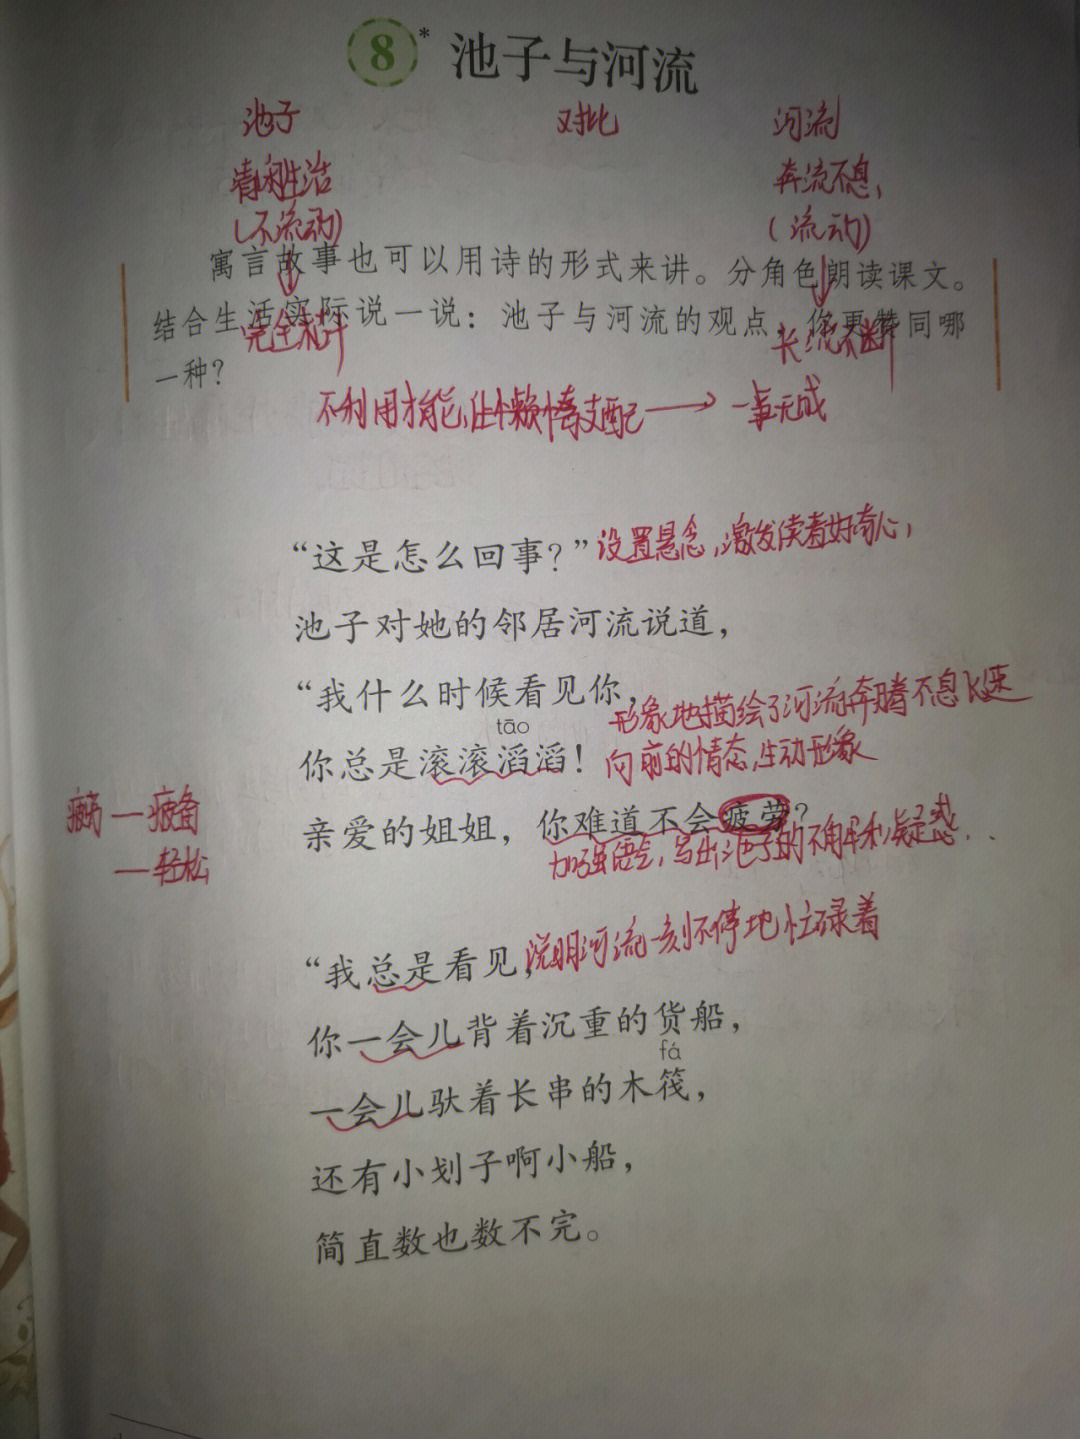 8* 池子与河流
池子 对比 河流
清闲生活 奔流不息,
(不流动) (流动)
寓言故事也可以用诗的形式来讲。分角色朗读课文。
结合生活实际说一说：池子与河流的观点，你更赞同哪
一种？
完全枯干 长流不断
不利用才能,让懒惰支配→一事无成
“这是怎么回事？”设置悬念,激发读者好奇心,
池子对她的邻居河流说道，
“我什么时候看见你，
形象地描绘了河流奔腾不息飞速
tāo
你总是滚滚滔滔！向前的情态,生动形象
疲劳—疲备
亲爱的姐姐，你难道不会疲劳？
—轻松
加强语气,写出池子的不解和疑惑...
“我总是看见，说明河流一刻不停地忙碌着
你一会儿背着沉重的货船，
fá
一会儿驮着长串的木筏，
还有小划子啊小船，
简直数也数不完。